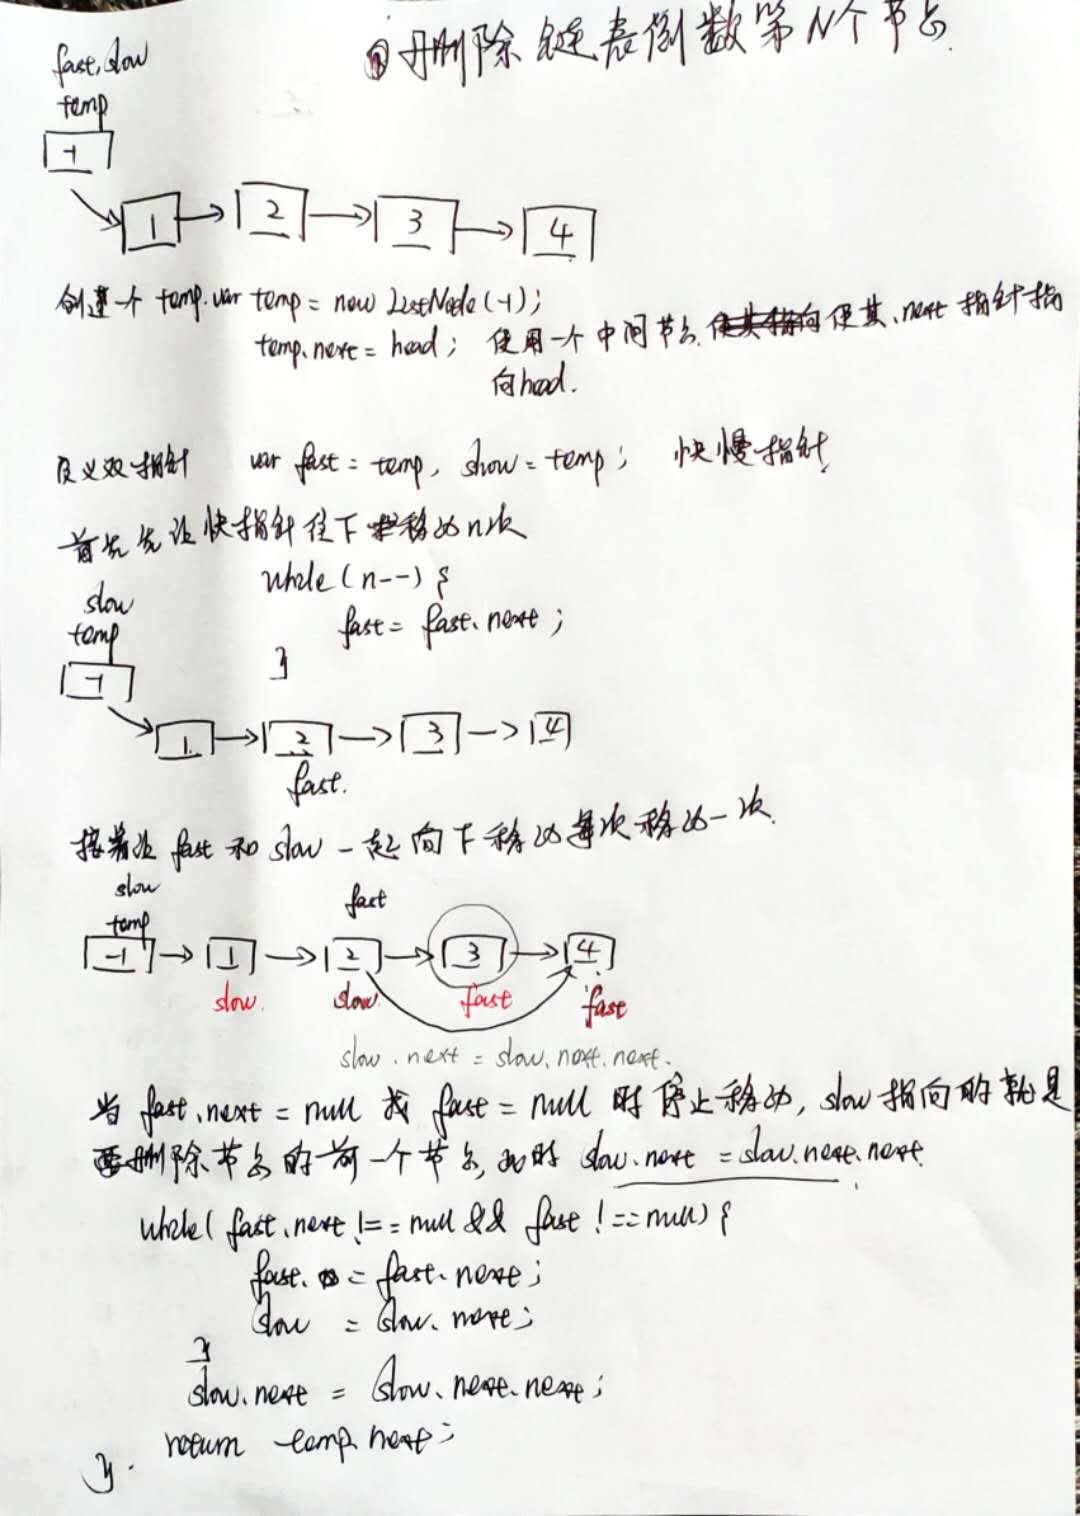 ① 删除链表倒数第N个节点
fast, slow
temp
-1
1 2 3 4
创建一个 temp. var temp = new ListNode(-1);
temp.next = head; 使用一个中间节点, 使其.next 指针指
向head.
定义双指针 var fast = temp, show = temp; 快慢指针
首先先让快指针往下移动n次
while(n--) {
fast = fast.next;
}
slow
temp
-1
1 2 3 4
fast.
接着让 fast 和 slow 一起向下移动每次移动一次.
slow
temp
fast
-1 1 2 3 4
slow. slow. fast fast
slow.next = slow.next.next.
当 fast.next = null 或 fast = null 时停止移动, slow 指向的就是
要删除节点的前一个节点, 此时 slow.next = slow.next.next.
while( fast.next !== null && fast !== null) {
fast. = fast.next;
slow = slow.next;
}
slow.next = slow.next.next;
return temp.next;
}.